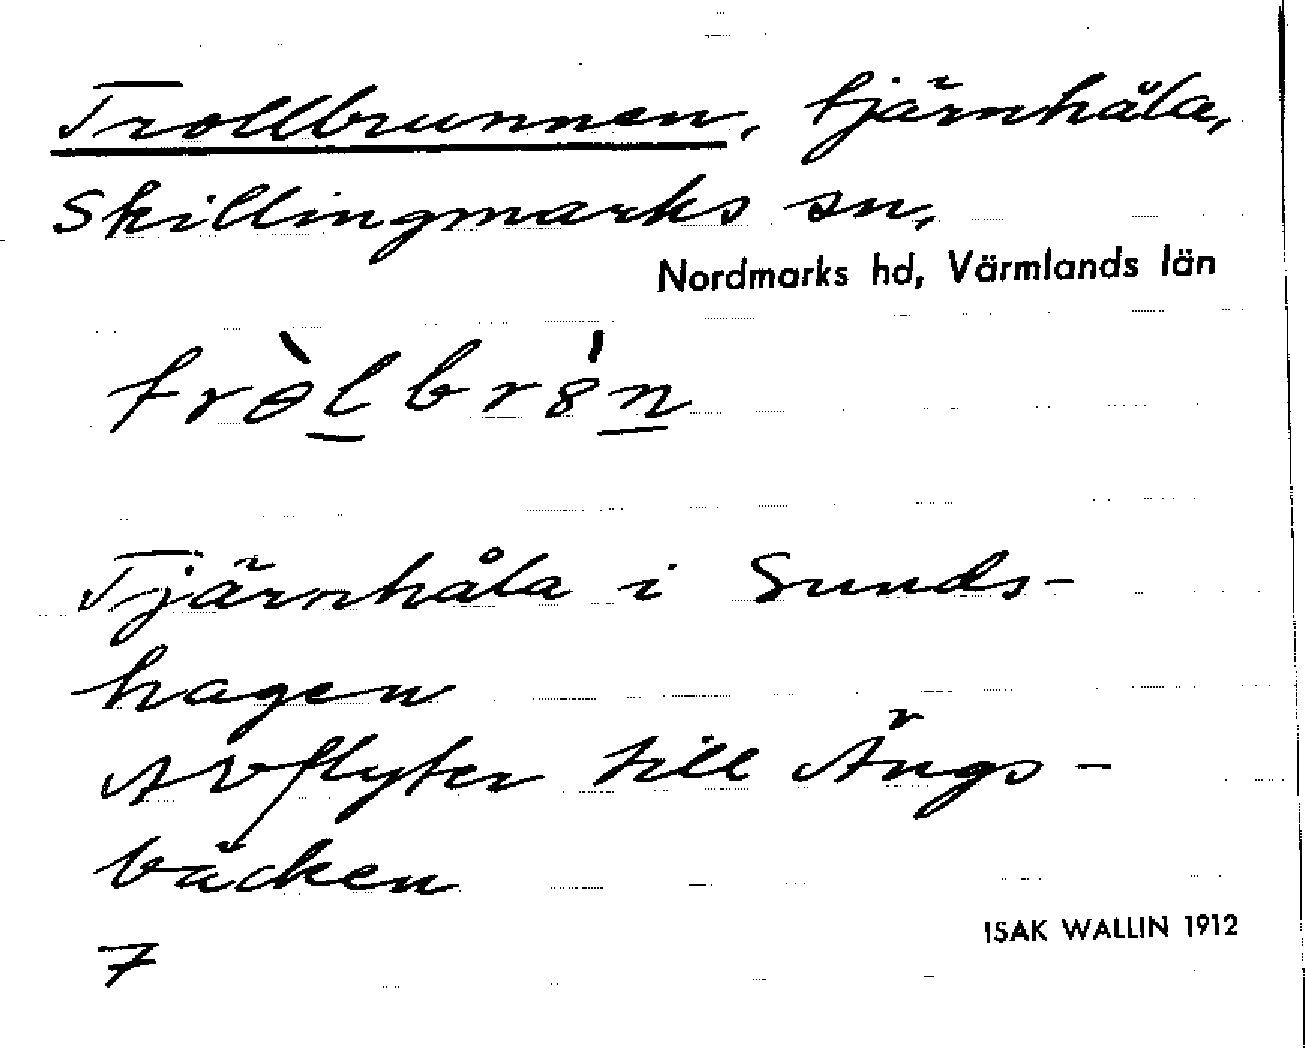 Trollbrunnen, tjärnhåla,
Skillingmarks sn,
Nordmarks hd, Värmlands län
tròlbrȣ́n
Tjärnhåla i Sunds-
hagen
Avflyter till Ängs-
bäcken
7
ISAK WALLIN 1912